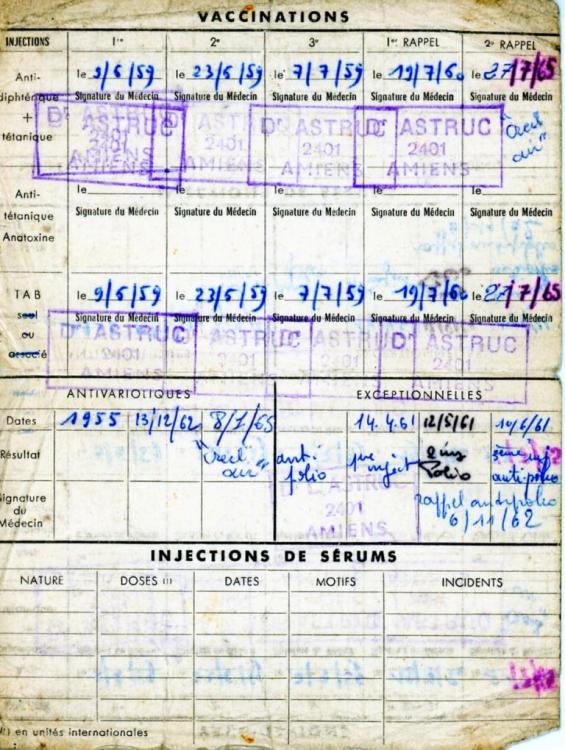 VACCINATIONS
INJECTIONS 1re 2e 3e 1er RAPPEL 2e RAPPEL
Anti-diphtérique + tétanique
le 9/5/59 le 23/5/59 le 7/7/59 le 19/7/60 le 27/7/65
Signature du Médecin Signature du Médecin Signature du Médecin Signature du Médecin Signature du Médecin
Dr ASTRUC Dr ASTRUC Dr ASTRUC Dr ASTRUC
2401 2401 2401 2401
AMIENS AMIENS AMIENS AMIENS
"Creil air"
Anti-tétanique Anatoxine
le le le le le
Signature du Médecin Signature du Médecin Signature du Médecin Signature du Médecin Signature du Médecin
TAB seul ou associé
le 9/5/59 le 23/5/59 le 7/7/59 le 19/7/60 le 27/7/65
Signature du Médecin Signature du Médecin Signature du Médecin Signature du Médecin Signature du Médecin
Dr ASTRUC Dr ASTRUC Dr ASTRUC Dr ASTRUC
2401 2401 2401 2401
AMIENS AMIENS AMIENS AMIENS
ANTIVARIOLIQUES EXCEPTIONNELLES
Dates 1955 13/12/62 8/7/65 14.4.61 12/5/61 14/6/61
Résultat "Creil air" anti polio 1re inject 2 inj Polio 3ème inj anti-polio
Signature du Médecin
ASTRUC
2401
AMIENS
rappel antipolio
6/11/62
INJECTIONS DE SÉRUMS
NATURE DOSES (1) DATES MOTIFS INCIDENTS
(1) en unités internationales